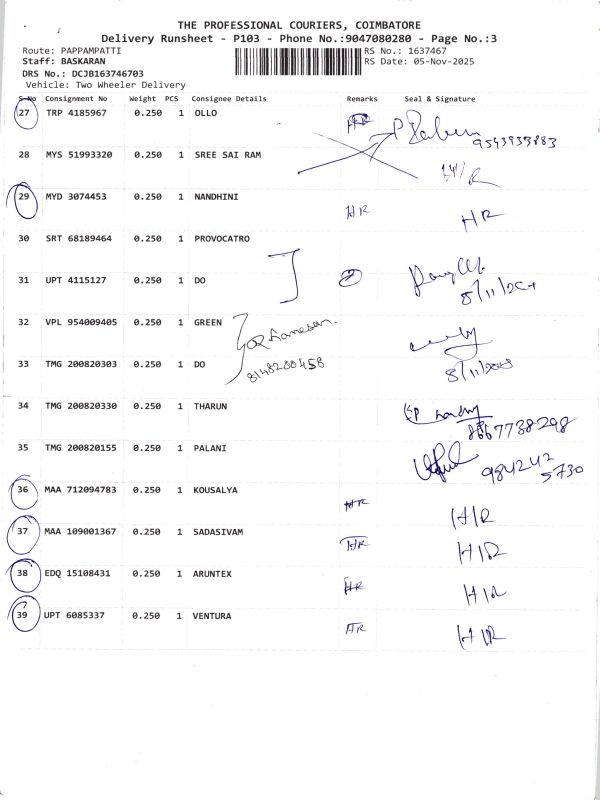 THE PROFESSIONAL COURIERS, COIMBATORE
Delivery Runsheet - P103 - Phone No.:9047080280 - Page No.:3
Route: PAPPAMPATTI RS No.: 1637467
Staff: BASKARAN RS Date: 05-Nov-2025
DRS No.: DCJB163746703
Vehicle: Two Wheeler Delivery
S-No Consignment No Weight PCS Consignee Details Remarks Seal & Signature
27 TRP 4185967 0.250 1 OLLO HR
9543933883
28 MYS 51993320 0.250 1 SREE SAI RAM
29 MYD 3074453 0.250 1 NANDHINI HR HR
30 SRT 68189464 0.250 1 PROVOCATRO
31 UPT 4115127 0.250 1 DO 2
32 VPL 954009405 0.250 1 GREEN
33 TMG 200820303 0.250 1 DO
8148200458
34 THG 200820330 0.250 1 THARUN
8667738298
35 TMG 200820155 0.250 1 PALANI
984242
5730
36 MAA 712094783 0.250 1 KOUSALYA HR HR
37 MAA 109001367 0.250 1 SADASIVAM HR HR
38 EDQ 15108431 0.250 1 ARUNTEX HR HR
39 UPT 6085337 0.250 1 VENTURA HR HR